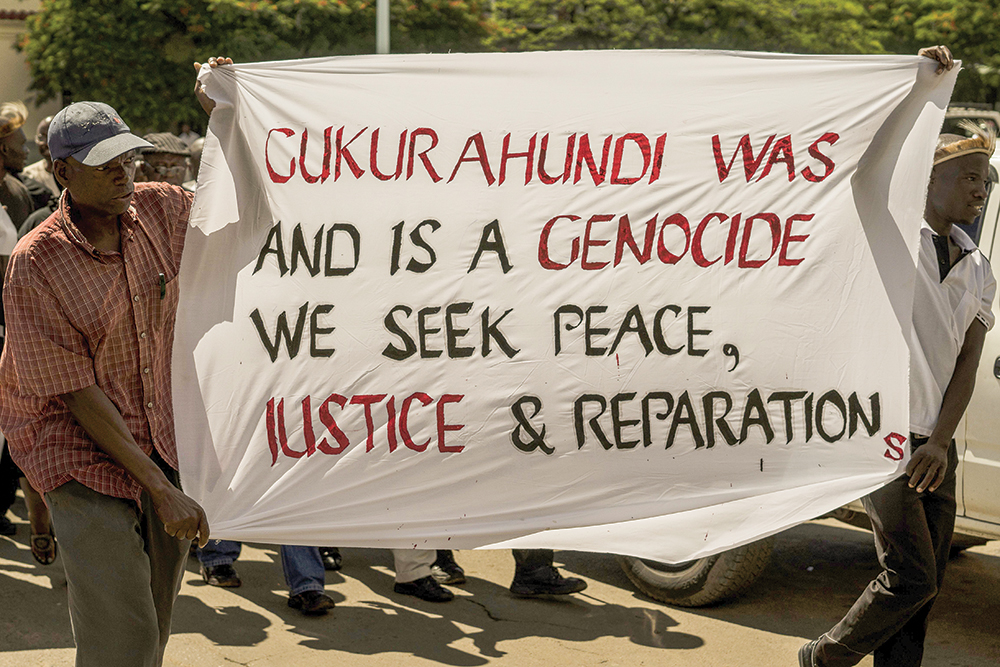 GUKURAHUNDI WAS
AND IS A GENOCIDE
WE SEEK PEACE,
JUSTICE & REPARATIONS